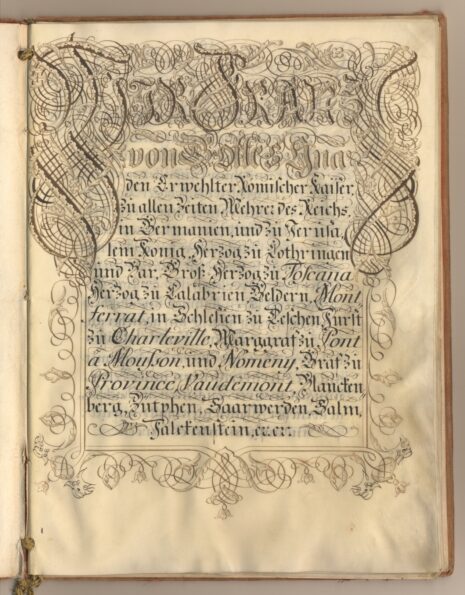 WIR FRANZ
von Gottes Gna
den Erwehlter Römischer Kaiser,
zu allen Zeiten Mehrer des Reichs,
in Germanien, und zu Jerusa,
lem König, Herzog zu Lothringen
und Bar, Groß-Herzog zu Toscana
Herzog zu Calabrien, Geldern, Mont
ferrat, in Schlesien zu Teschen, Fürst
zu Charleville, Marggraf zu Pont
a Mousson, und Nomeny, Graf zu
Province, Vaudemont, Blancken
berg, Zütphen, Saarwerden, Salm,
Falckenstein, &c. &c.